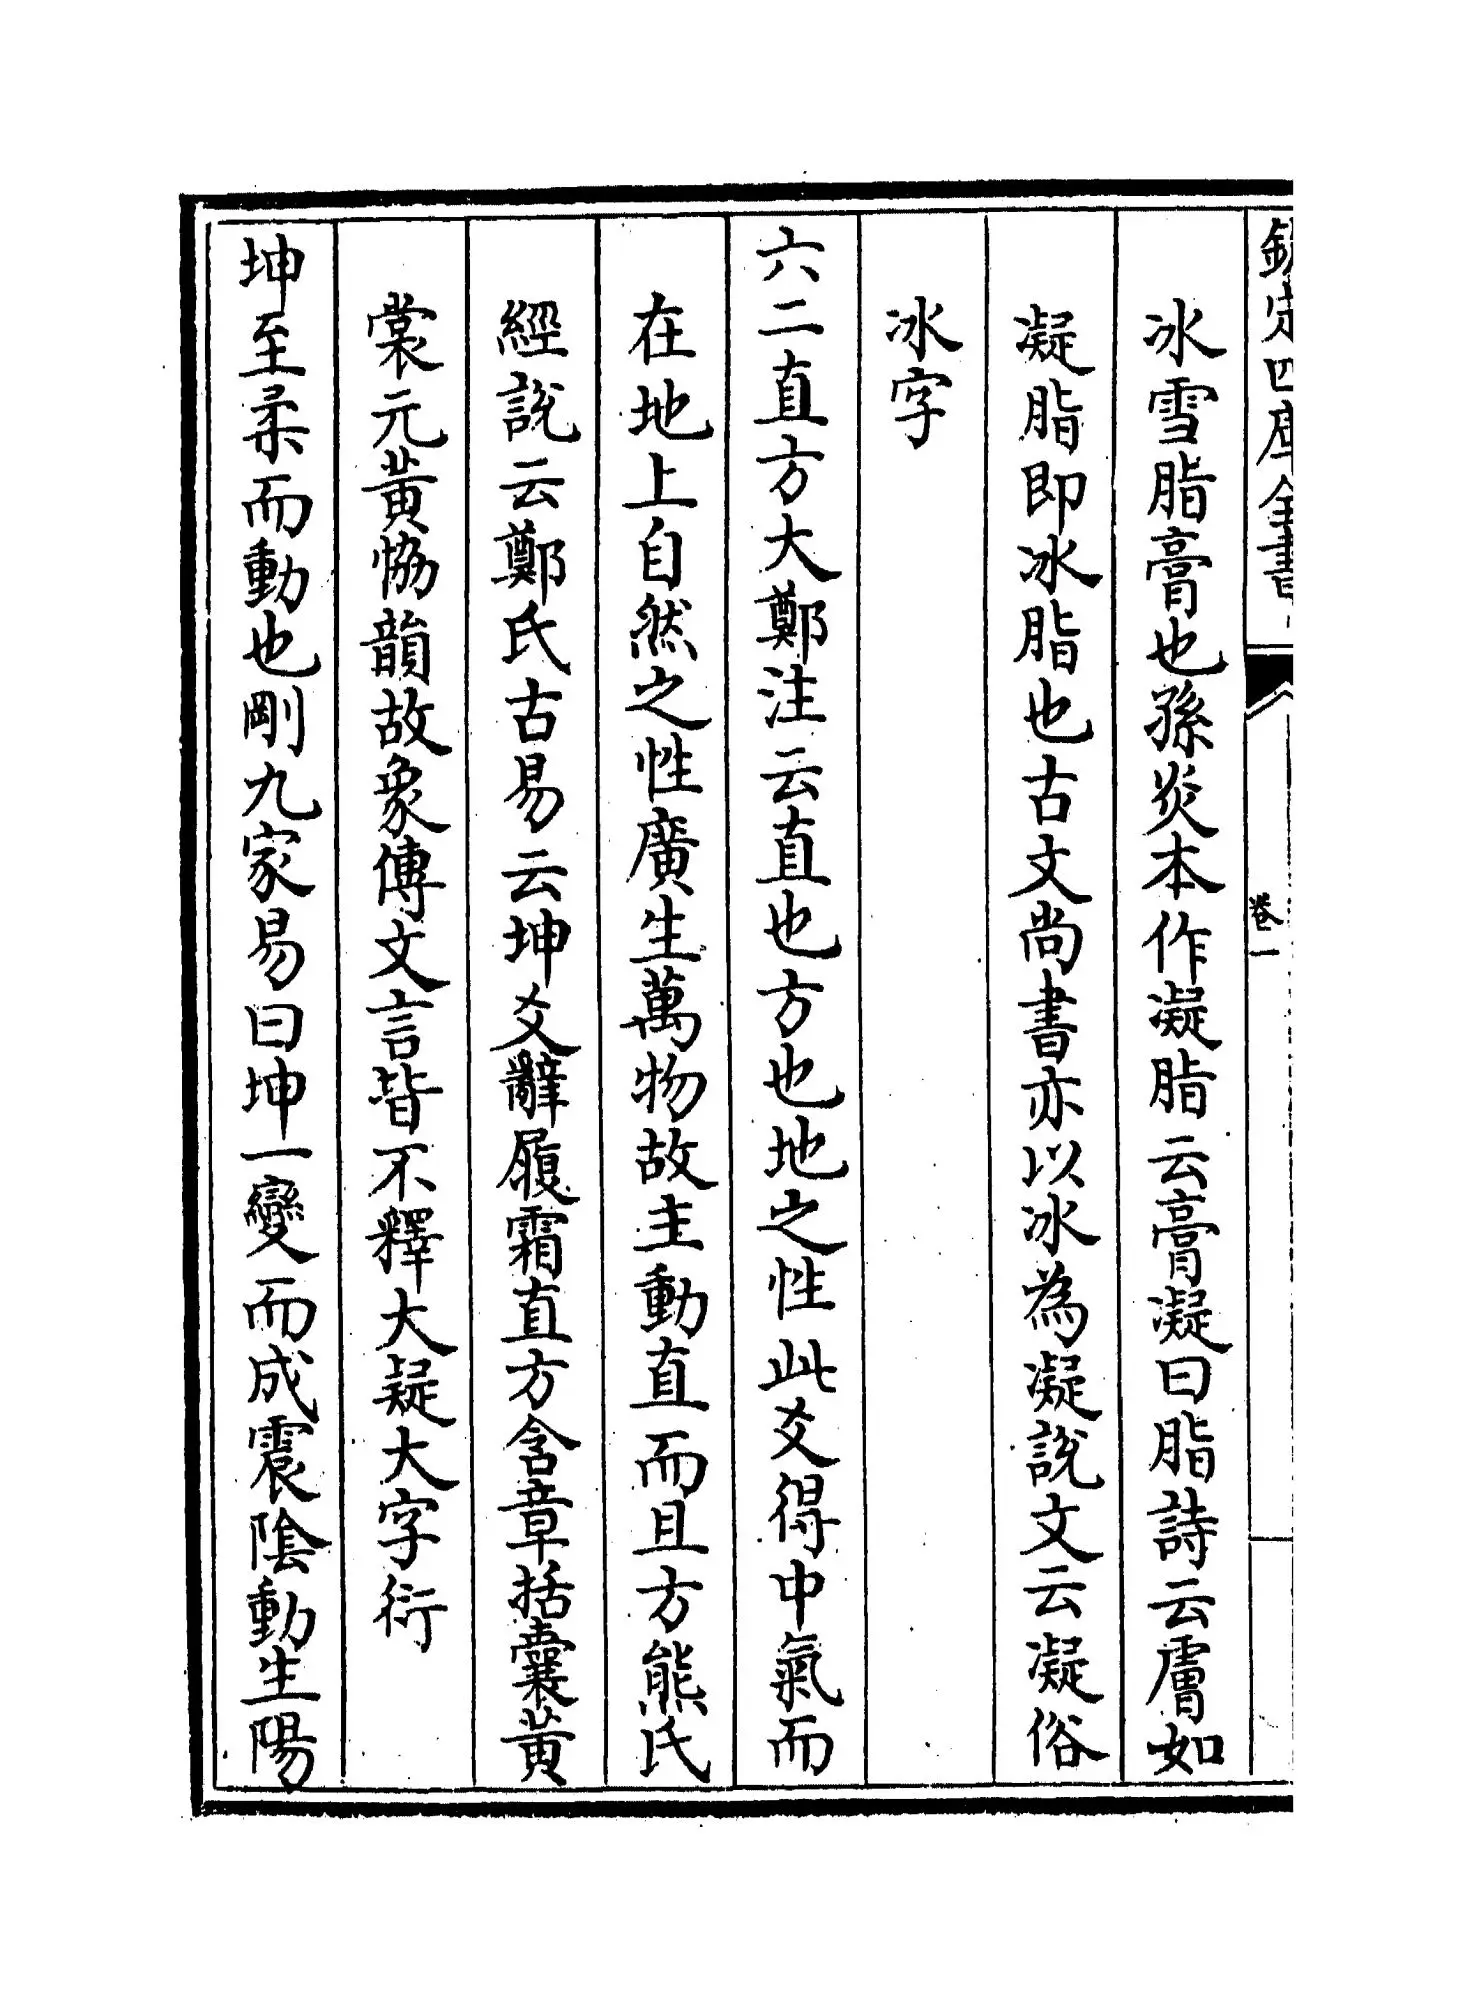 欽定四庫全書
卷一
冰雪脂膏也孫炎本作凝脂云膏凝曰脂詩云膚如
凝脂即冰脂也古文尚書亦以冰為凝說文云凝俗
冰字
六二直方大鄭注云直也方也地之性此爻得中氣而
在地上自然之性廣生萬物故主動直而且方熊氏
經說云鄭氏古易云坤爻辭履霜直方含章括囊黃
裳元黃恊韻故象傳文言皆不釋大疑大字衍
坤至柔而動也剛九家易曰坤一變而成震陰動生陽